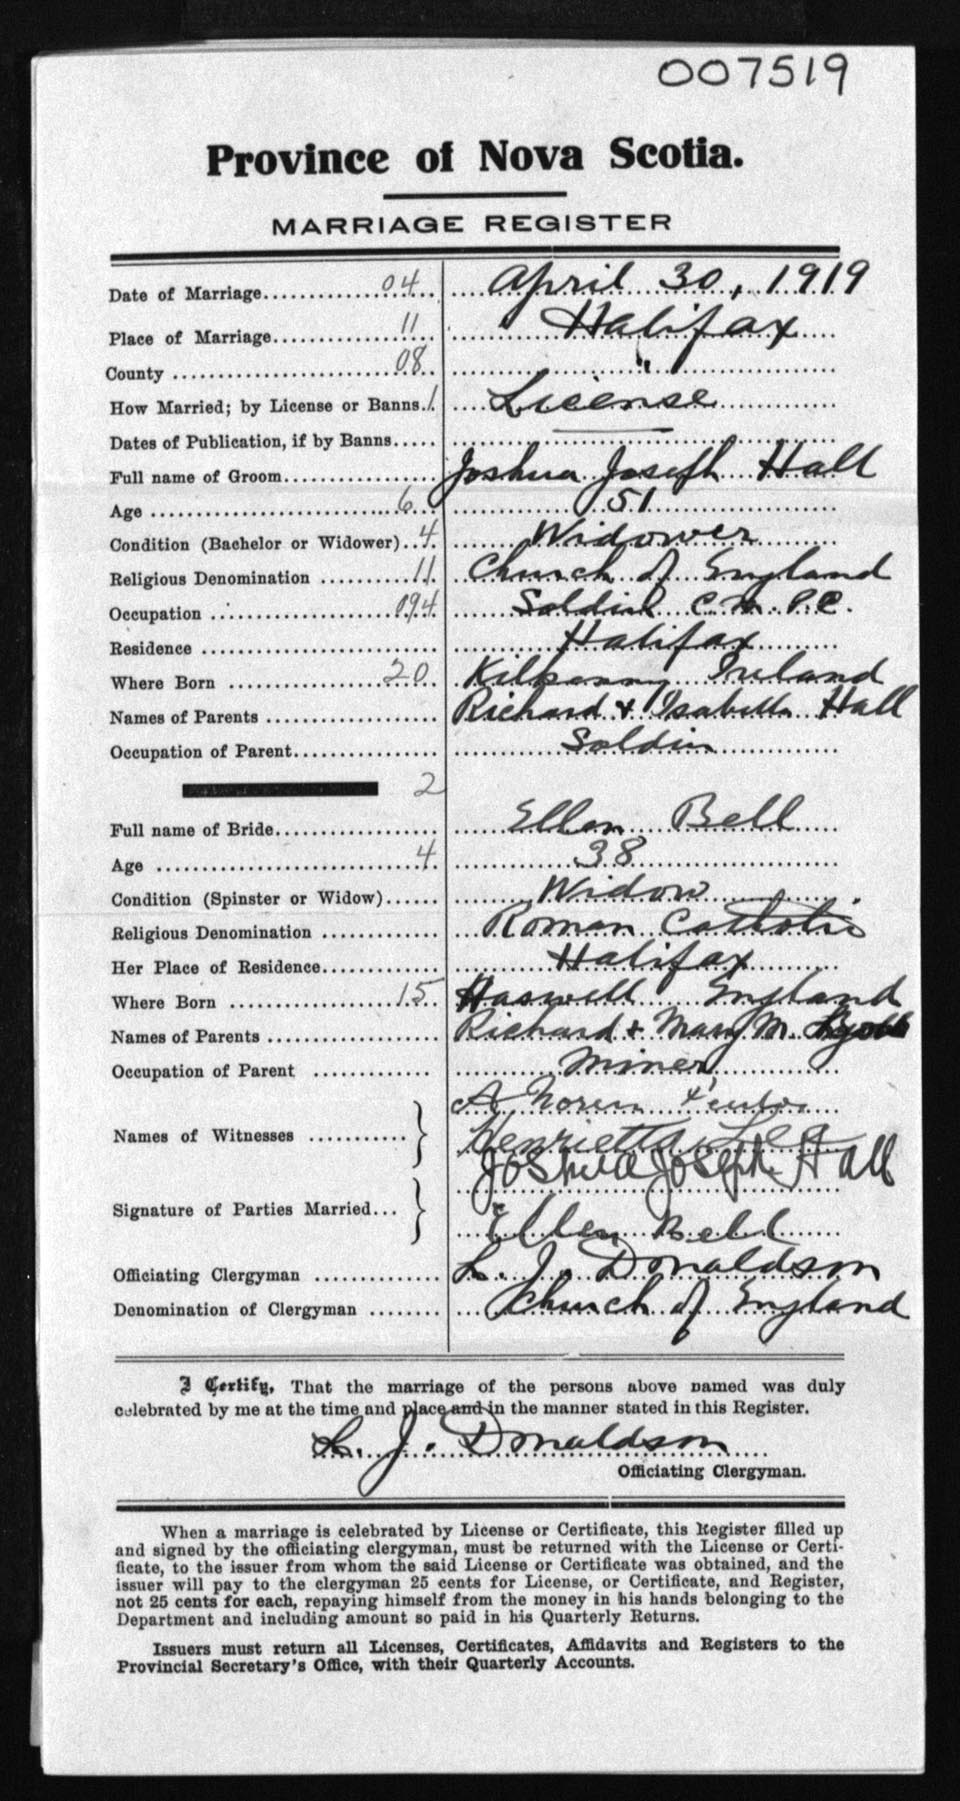 007519
Province of Nova Scotia.
MARRIAGE REGISTER
Date of Marriage 04 April 30, 1919
Place of Marriage 11 Halifax
County 08 "
How Married; by License or Banns 1 License
Dates of Publication, if by Banns
Full name of Groom Joshua Joseph Hall
Age 6 51
Condition (Bachelor or Widower) 4 Widower
Religious Denomination 11 Church of England
Occupation 094 Soldier C.M.P.C.
Residence Halifax
Where Born 20 Kilkenny Ireland
Names of Parents Richard & Isabella Hall
Occupation of Parent Soldier
2
Full name of Bride Ellen Bell
Age 4 38
Condition (Spinster or Widow) Widow
Religious Denomination Roman Catholic
Her Place of Residence Halifax
Where Born 15 Haswell England
Names of Parents Richard & Mary M.
Occupation of Parent Miner
A
Names of Witnesses Henrietta
Joshua Joseph Hall
Signature of Parties Married Ellen Bell
Officiating Clergyman L. J. Donaldson
Denomination of Clergyman Church of England
I Certify, That the marriage of the persons above named was duly
celebrated by me at the time and place and in the manner stated in this Register.
L. J. Donaldson
Officiating Clergyman.
When a marriage is celebrated by License or Certificate, this Register filled up
and signed by the officiating clergyman, must be returned with the License or Certi-
ficate, to the issuer from whom the said License or Certificate was obtained, and the
issuer will pay to the clergyman 25 cents for License, or Certificate, and Register,
not 25 cents for each, repaying himself from the money in his hands belonging to the
Department and including amount so paid in his Quarterly Returns.
Issuers must return all Licenses, Certificates, Affidavits and Registers to the
Provincial Secretary's Office, with their Quarterly Accounts.